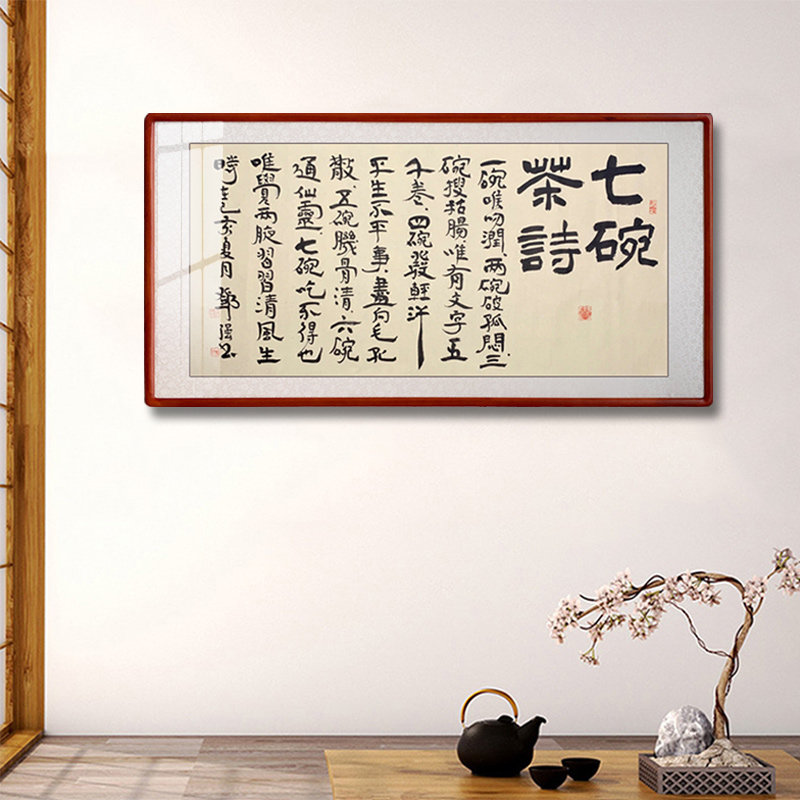 七碗
茶詩
一碗喉吻潤、两碗破孤悶、三
碗搜枯腸唯有文字五
千卷、四碗發輕汗
平生不平事、盡向毛孔
散、五碗肌骨清、六碗
通仙靈、七碗吃不得也
唯覺两腋習習清風生
時在己亥夏月 鄧强书